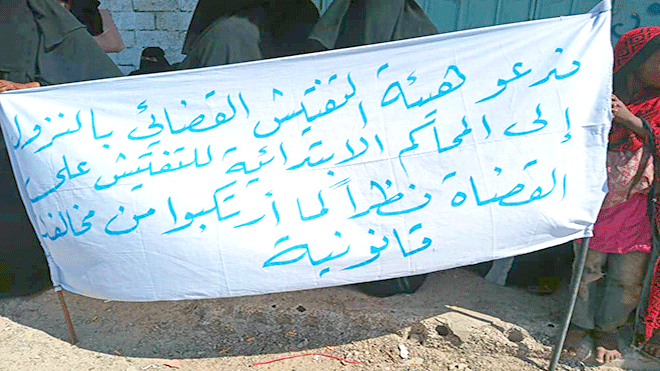 ندعو هيئة التفتيش القضائي بالنزول
إلى المحاكم الابتدائية للتفتيش على
القضاة نظراً لما أرتكبوا من مخالفات
قانونية